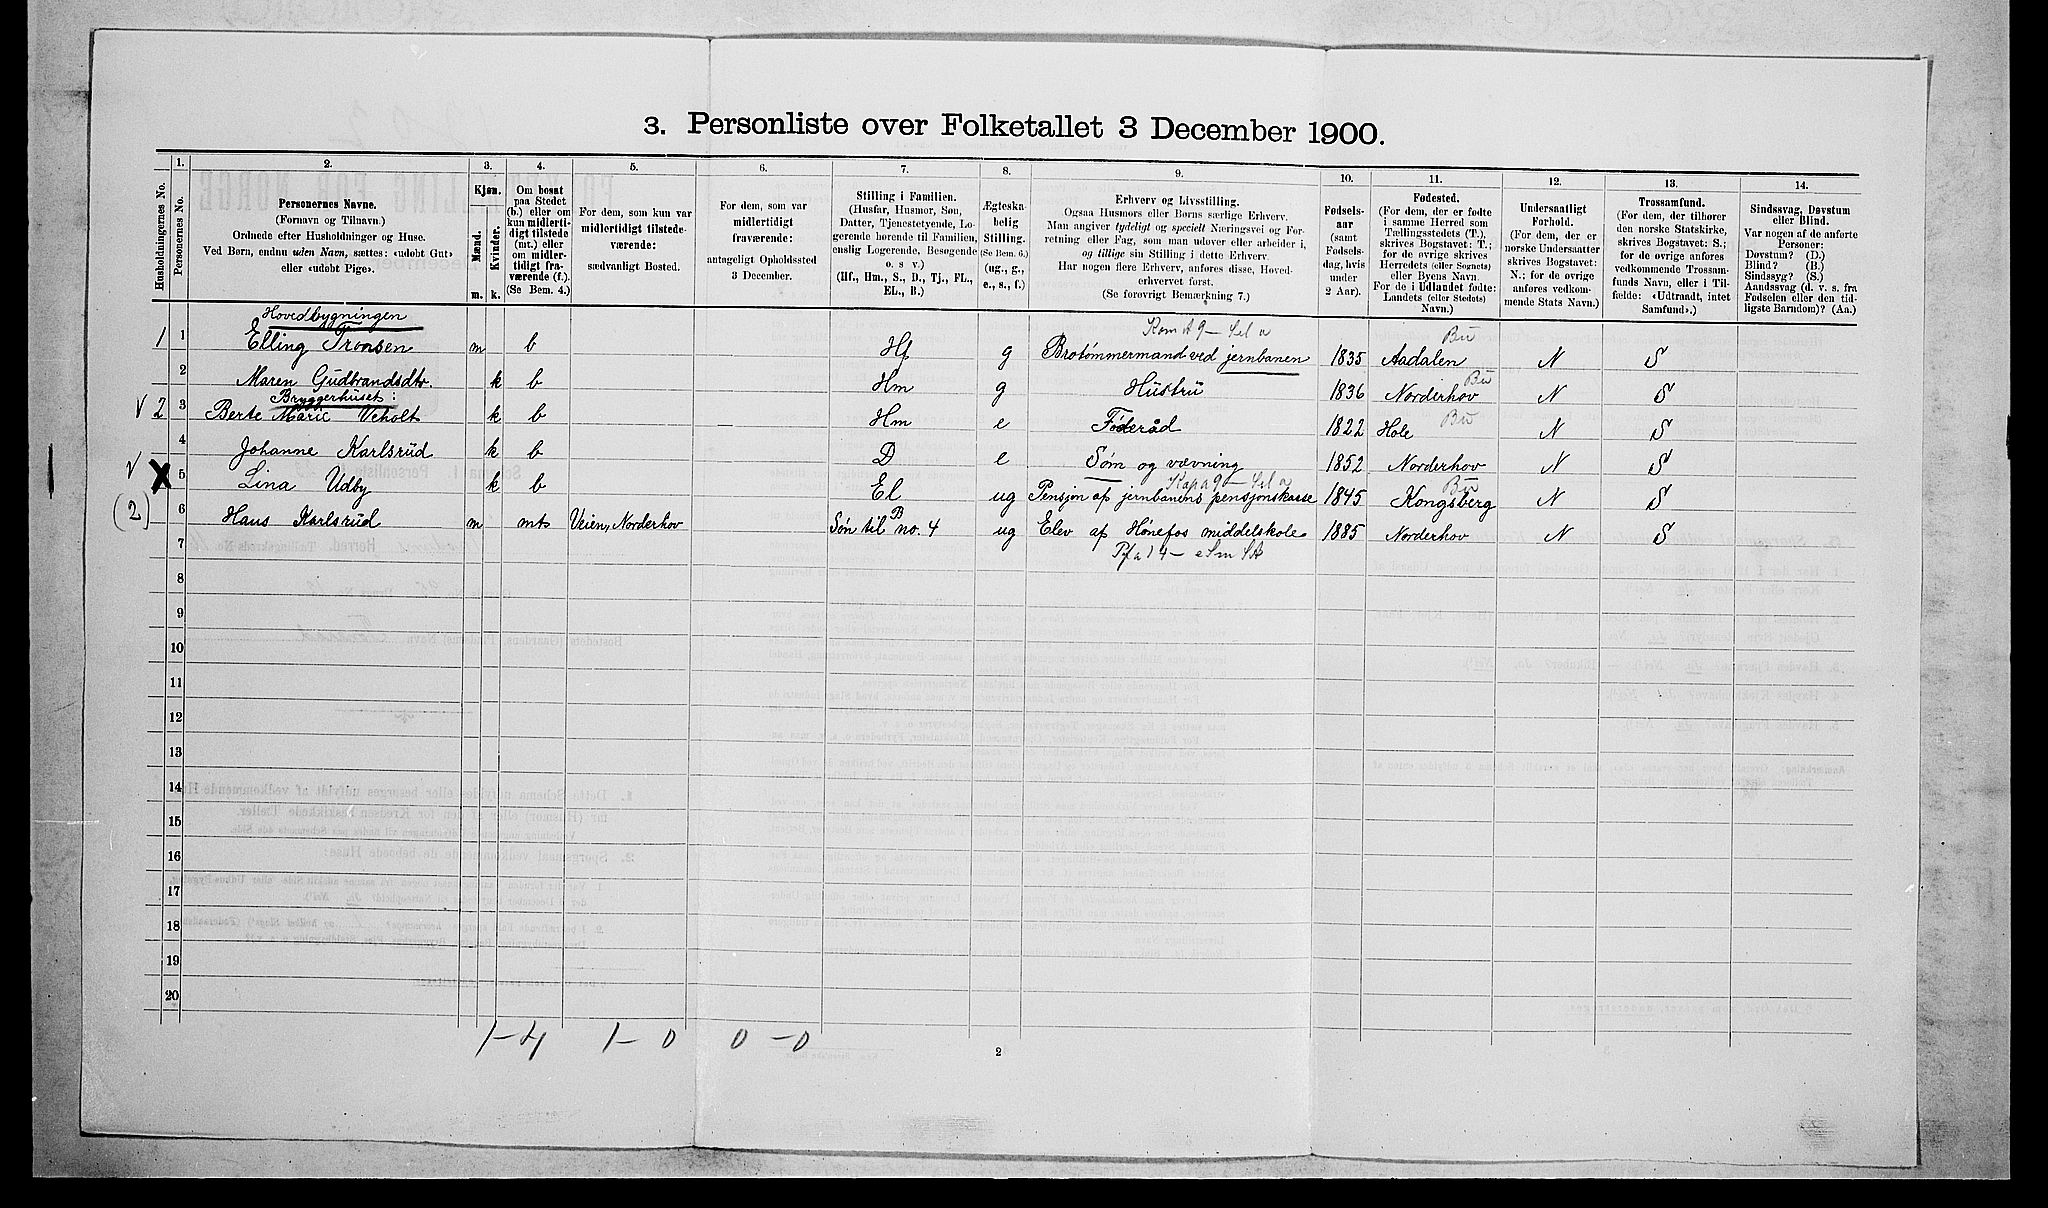 3. Personliste over Folketallet 3 December 1900.
1. 2. 3. 4. 5. 6. 7. 8. 9. 10. 11. 12. 13. 14.
Husholdningernes No.
Personernes No.
Personernes Navne.
(Fornavn og Tilnavn.)
Ordnede efter Husholdninger og Huse.
Ved Børn, endnu uden Navn, sættes: «udobt Gut»
eller «udobt Pige».
Kjøn.
Mænd. Kvinder.
m. k.
Om bosat
paa Stedet
(b.) eller om
kun midlerti-
digt tilstede
(mt.) eller
om midler-
tidigt fra-
værende (f.).
(Se Bem. 4.)
For dem, som kun var
midlertidigt tilstede-
værende:
sædvanligt Bosted.
For dem, som var
midlertidigt
fraværende:
antageligt Opholdssted
3 December.
Stilling i Familien.
(Husfar, Husmor, Søn,
Datter, Tjenestetyende, Lo-
gerende hørende til Familien,
enslig Logerende, Besøgende
o. s. v.)
(Hf., Hm., S., D., Tj., FL.,
EL., B.)
Ægteska-
belig
Stilling.
(Se Bem. 6.)
(ug., g.,
e., s., f.)
Erhverv og Livsstilling.
Ogsaa Husmors eller Børns særlige Erhverv.
Man angiver tydeligt og specielt Næringsvei og For-
retning eller Fag, som man udover eller arbeider i,
og tillige sin Stilling i dette Erhverv.
Har nogen flere Erhverv, anføres disse, Hoved-
erhvervet først.
(Se forøvrigt Bemærkning 7.)
Fødsels-
aar
(samt
Fødsels-
dag, hvis
under
2 Aar).
Fødested.
(For dem, der er fødte
i samme Herred som
Tællingsstedets (T.),
skrives Bogstavet: T.;
for de øvrige skrives
Herredets (eller Sognets)
eller Byens Navn.
For de i Udlandet fødte:
Landets (eller Stedets)
Navn.)
Undersaatligt
Forhold.
(For dem, der er
norske Undersaatter
skrives Bogstavet:
N.; for de øvrige
anføres vedkom-
mende Stats Navn.)
Trossamfund.
(For dem, der tilhører
den norske Statskirke,
skrives Bogstavet: S.;
for de øvrige anføres
vedkommende Trossam-
funds Navn, eller i Til-
fælde: «Udtraadt, intet
Samfund».)
Sindssvag, Døvstum
eller Blind.
Var nogen af de anførte
Personer:
Døvstum? (D.)
Blind? (B.)
Sindssyg? (S.)
Aandssvag (d. v. s. fra
Fødselen eller den tid-
ligste Barndom)? (Aa.)
Hovedbygningen
1 1 Elling Tronsen m b Hf g Brotømmermand ved jernbanen 1835 Aadalen Bu N S
2 Maren Gudbrandsdtr. k b Hm g Hustru 1836 Norderhov Bu N S
Bryggerhuset:
2 3 Berte Marie Veholt k b Hm e Føderåd 1822 Hole Bu N S
4 Johanne Karlsrud k b D e Søm og vævning 1852 Norderhov N S
5 Lina Udby k b El ug Pensjon af jernbanens pensjonskasse 1845 Kongsberg Bu N S
(2) 6 Hans Karlsrud m mt Veien, Norderhov Søn til no. 4 B ug Elev af Hønefos middelskole 1885 Norderhov N S
7
8
9
10
11
12
13
14
15
16
17
18
19
20
1-4 1-0 0-0
2